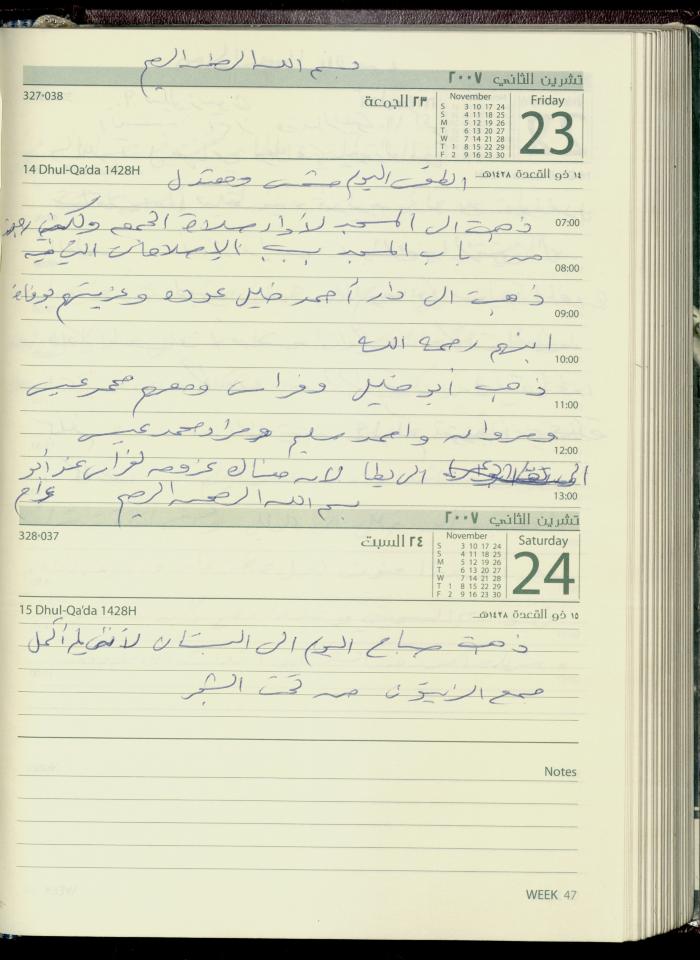 بسم الله الرحمن الرحيم
تشرين الثاني ٢٠٠٧
327-038
٢٣ الجمعة
November
S 3 10 17 24
S 4 11 18 25
M 5 12 19 26
T 6 13 20 27
W 7 14 21 28
T 1 8 15 22 29
F 2 9 16 23 30
Friday
23
14 Dhul-Qa'da 1428H
١٤ ذو القعدة ١٤٢٨هـ
الطقس اليوم مشمس ومعتدل
07:00
ذهبت الى المسجد لأداء صلاة الجمعه ولكني رجعت
من باب المسجد بسبب الإصلاحات التي فيه
08:00
ذهبت الى دار أحمد خليل عوده وعزيتهم بوفاة
09:00
ابنهم رحمه الله
10:00
ذهب أبو خليل وفراس ومعهم محمد عيسى
11:00
ومروان واحمد سليم ومراد محمد عيسى
12:00
الى يطا لانه هناك عزومه لفراس عند أبو
13:00
بسم الله الرحمن الرحيم
تشرين الثاني ٢٠٠٧
328-037
٢٤ السبت
November
S 3 10 17 24
S 4 11 18 25
M 5 12 19 26
T 6 13 20 27
W 7 14 21 28
T 1 8 15 22 29
F 2 9 16 23 30
Saturday
24
15 Dhul-Qa'da 1428H
١٥ ذو القعدة ١٤٢٨هـ
ذهبت صباح اليوم الى البستان لأنني لم أكمل
جمع الزيتون من تحت الشجر
Notes
WEEK 47